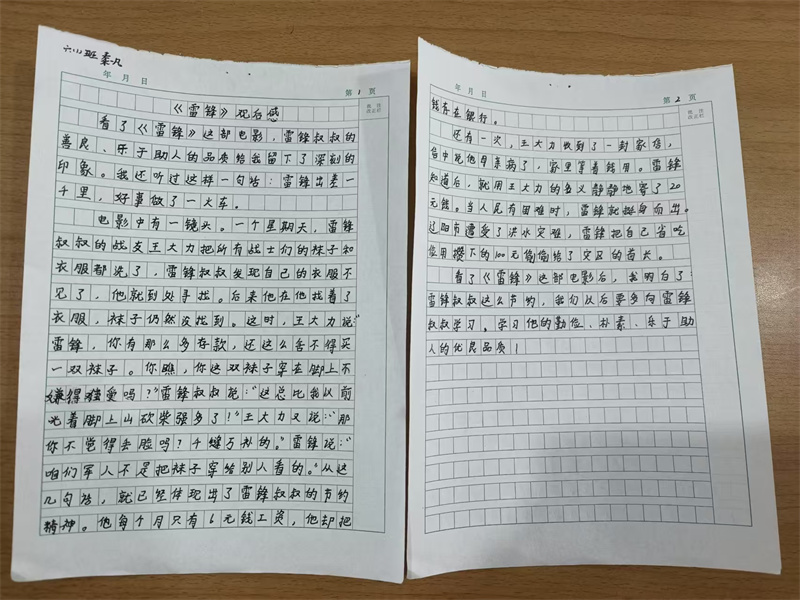 六(1)班
年 月 日
第 1 页
《雷锋》观后感
看了《雷锋》这部电影，雷锋叔叔的
善良、乐于助人的品质给我留下了深刻的
印象。我还听过这样一句话：雷锋出差一
千里，好事做了一大车。
电影中有一镜头。一个星期天，雷锋
叔叔的战友王大力把所有战士们的袜子和
衣服都洗了，雷锋叔叔发现自己的衣服不
见了，他就到处寻找。后来他在他找着了
衣服，袜子仍然没找到。这时，王大力说：“
雷锋，你有那么多存款，还这么舍不得买
一双袜子。你瞧，你这双袜子穿在脚上不
嫌得难受吗？”雷锋叔叔说：“这总比我从前
光着脚上山砍柴强多了！”王大力又说：“那
你不觉得丢脸吗？千缝万补的。”雷锋说：“
咱们军人不是把袜子穿给别人看的。”从这
几句话，就已经体现出了雷锋叔叔的节约
精神。他每个月只有6元钱工资，他却把
年 月 日
第 2 页
钱存在银行。
还有一次，王大力收到了一封家信，
信中说他母亲病了，家里等着钱用。雷锋
知道后，就用王大力的名义静静地寄了20
元钱。当人民有困难时，雷锋就挺身而出。
辽阳市遭受了洪水灾难，雷锋把自己省吃
俭用攒下的100元偷偷给了灾区的首长。
看了《雷锋》这部电影后，我明白了
雷锋叔叔这么节约，我们从后要多向雷锋
叔叔学习。学习他的勤俭、朴素、乐于助
人的优良品质！